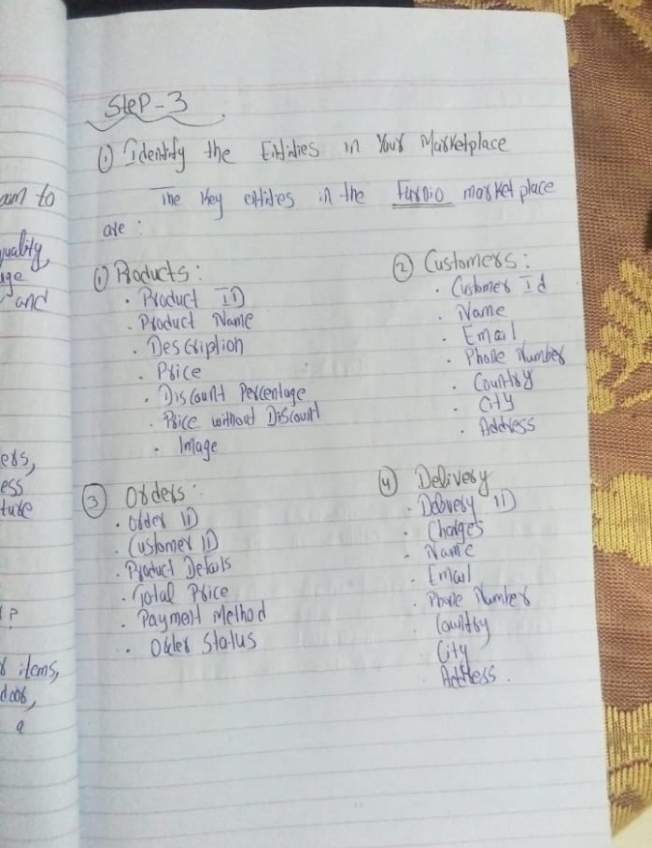 Step-3
① Identify the Entities in Your Marketplace
The Key entities in the Furnio market place
are :
① Products :
· Product ID
· Product Name
· Description
· Price
· Discount Percentage
· Price without Discount
· Image
② Customers :
· Customer Id
· Name
· Email
· Phone Number
· Country
· City
· Address
③ Orders :
· Order ID
· Customer ID
· Product Details
· Total Price
· Payment Method
· Order Status
④ Delivery
· Delivery ID
· Charges
· Name
· Email
· Phone Number
· Country
City
· Address .
am to
quality,
and
ers,
ess
ture
items,
a